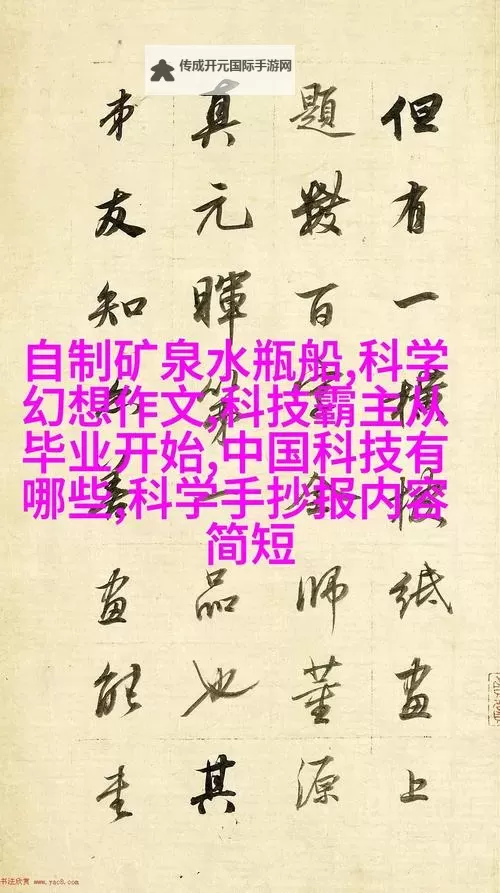 传成开元国际手游网
自制矿泉水瓶船,科学
幻想作文,科技霸主从
毕业开始,中国科技有
哪些,科学手抄报内容
简短
但有一橫披紙畫上
題數百字全師董源
真元暉第一品也其
友知善畫能
书法欣赏 www.yac8.com